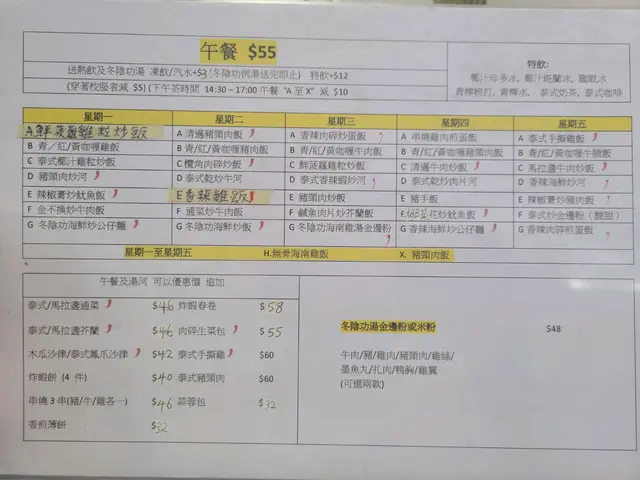 午餐 $55
送熱飲及冬陰功湯 凍飲/汽水+$3 (冬陰功例湯送完即止) 特飲+$12
(穿著校服者減 $5) (下午茶時間 14:30 – 17:00 午餐 "A 至 X" 減 $10
特飲:
椰汁珍多冰, 椰汁斑蘭冰, 龍眼冰
青檸梳打, 青檸水, 泰式奶茶, 泰式咖啡
星期一 星期二 星期三 星期四 星期五
A 鮮菠蘿雞粒炒飯 A 清邁豬頸肉飯 A 香辣肉碎炒蛋飯 A 串燒雞肉煎蛋飯 A 泰式手撕雞飯
B 青/紅/黃咖喱雞飯 B 青/紅/黃咖喱豬肉飯 B 青/紅/黃咖喱牛肉飯 B 青/紅/黃咖喱雞飯 B 青/紅/黃咖喱牛腩飯
C 泰式椰汁雞粒炒飯 C 欖角肉碎炒飯 C 鮮菠蘿雞粒炒飯 C 清邁牛肉炒飯 C 馬拉盞牛肉炒飯
D 豬頸肉炒河 D 泰式乾炒牛河 D 泰式香辣蝦炒河 D 泰式乾炒肉片河 D 香辣海鮮炒河
E 辣椒膏炒魷魚飯 E 香辣雞飯 E 豬頸肉炒飯 E 豬手飯 E 辣椒膏炒豬肉飯
F 金不換炒牛肉飯 F 通菜炒牛肉飯 F 鹹魚肉片炒芥蘭飯 F 花炒魷魚飯 F 泰式炒金邊粉 (酸甜)
G 冬陰功海鮮炒公仔麵 G 冬陰功海鮮炒飯 G 冬陰功海南雞湯金邊粉 G 香辣海鮮炒公仔麵 G 香辣肉碎煎蛋飯
星期一至星期五 H.無骨海南雞飯 X. 豬頸肉飯
午餐及湯河 可以優惠價 追加
泰式/馬拉盞通菜 $46 炸蝦春卷 $58
泰式/馬拉盞芥蘭 $46 肉碎生菜包 $55
木瓜沙律/泰式鳳爪沙律 $42 泰式手撕雞 $60
炸蝦餅 (4 件) $40 泰式豬頸肉 $60
串燒 3 串(豬/牛/雞各一) $46 蒜蓉包 $32
香煎薄餅 $32
冬陰功湯金邊粉或米粉 $48
牛肉/豬/雞肉/豬頸肉/雞絲/
墨魚丸/扎肉/鴨胸/雞翼
(可選兩款)